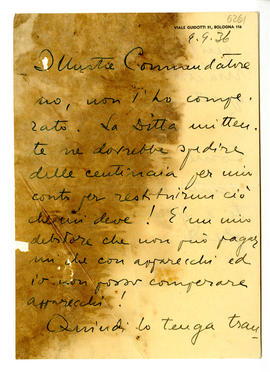 VIALE GUIDOTTI 51, BOLOGNA 116
9.9.36
Illustre Commendatore
no, non l'ho compe-
rato. La Ditta mitten-
te ne dovrebbe spedire
delle centinaia per mio
conto per restituirmi ciò
che mi deve! È un mio
debitore che non può pagar-
mi che con apparecchi ed
io non posso comperare
apparecchi!
Quindi lo tenga tran-